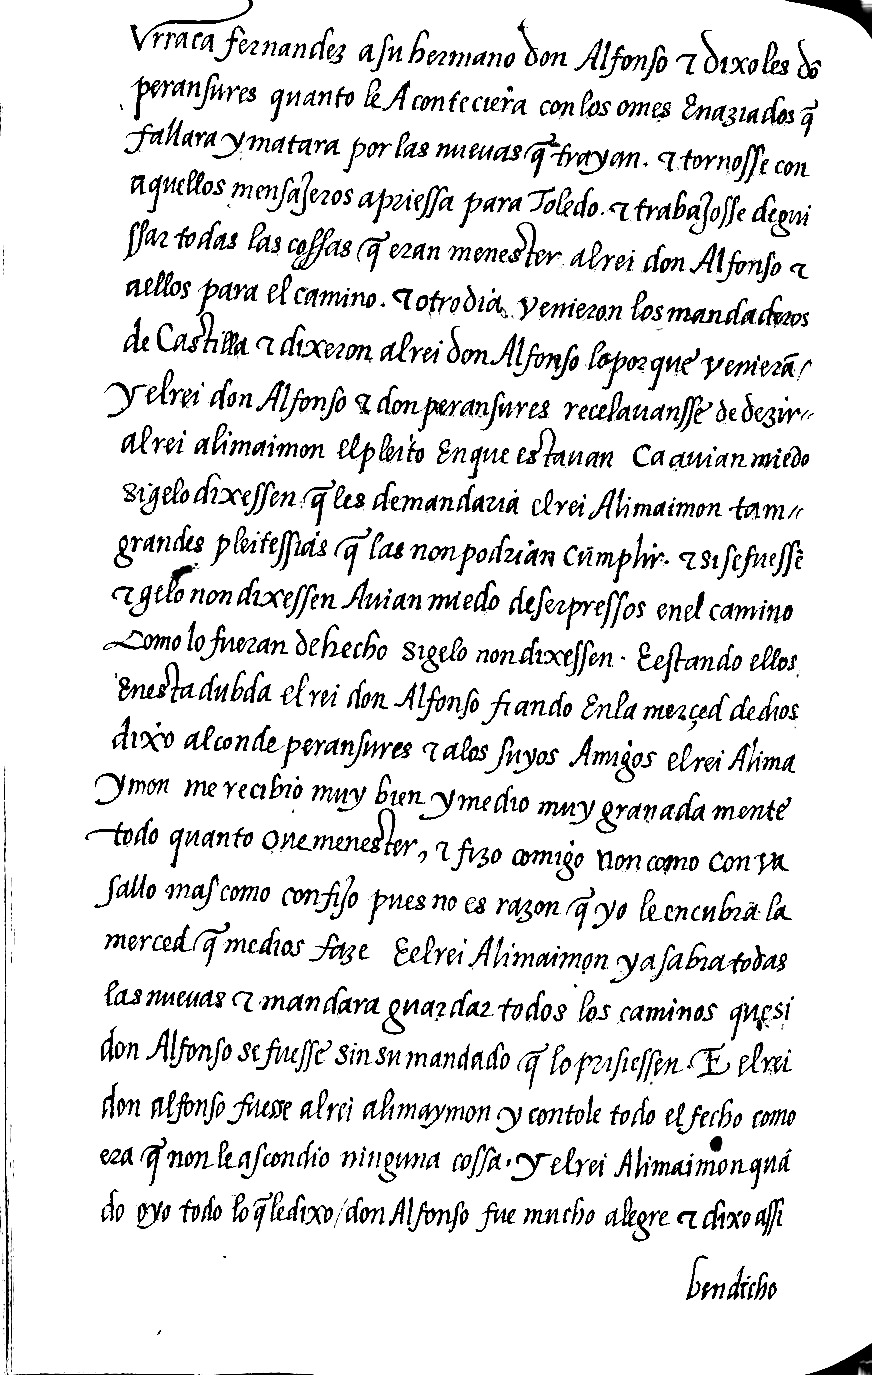 Vrraca fernandez a su hermano don Alfonso & dixoles dō
peransures quanto le Acontecieŕa con los omes Enaziados q̄
fallara y matara por las nueuas q̄ trayan. & tornosse con
aquellos mensajeros apriessa para Toledo. & trabajosse de gui
ssar todas las cossas q̄ eran menester al rei don Alfonso &
aellos para el camino. & otro dia venieron los mandaderos
de Castilla & dixeron al rei don Alfonso lo por que venierā/
Y el rei don Alfonso & don peransures recelauansse de dezir〃
al rei alimaimon el pleito En que estauan Ca auian miedo
Si gelo dixessen q̄ les demandaria el rei Alimaimon tam〃
grandes pleitessias q̄ las non podrian cūmplir. & si se fuesse
& gelo non dixessen Auian miedo de ser pressos en el camino
Como lo fueran de hecho Si gelo non dixessen. E estando ellos
En esta dubda el rei don Alfonso fiando En la merçed de dios
dixo al conde peransures & a los suyos Amigos el rei Alima
ymon me recibio muy bien y me dio muy granada mente
todo quanto oue menester, & fizo comigo non como con va
sallo mas como con fijo pues no es razon q̄ yo le encubra la
merced q̄ me dios faze E el rei Alimaimon ya sabra todas
las nueuas & mandara guardar todos los caminos que si
don Alfonso se fuesse sin su mandado q̄ lo prisiessen. E el rei
don alfonso fuesse al rei alimaymon y contole todo el fecho como
era q̄ non le ascondio ninguna cossa. Y el rei Alimaimon quā
do oyo todo lo q̄ le dixo/don Alfonso fue mucho alegre & dixo assi
bendicho